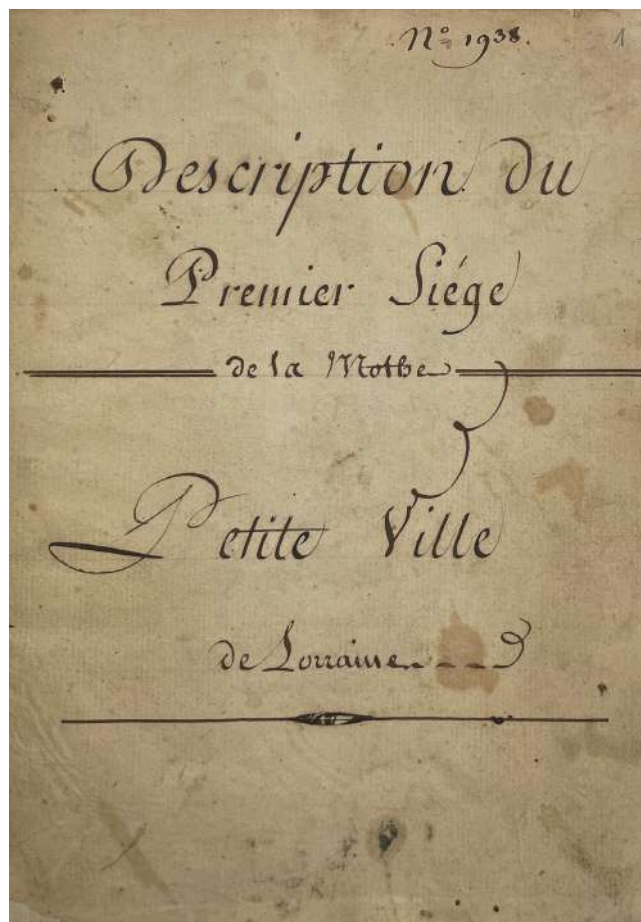 N° 1938. 1
Description du
Premier Siége
de la Mothe
Petite Ville
de Lorraine